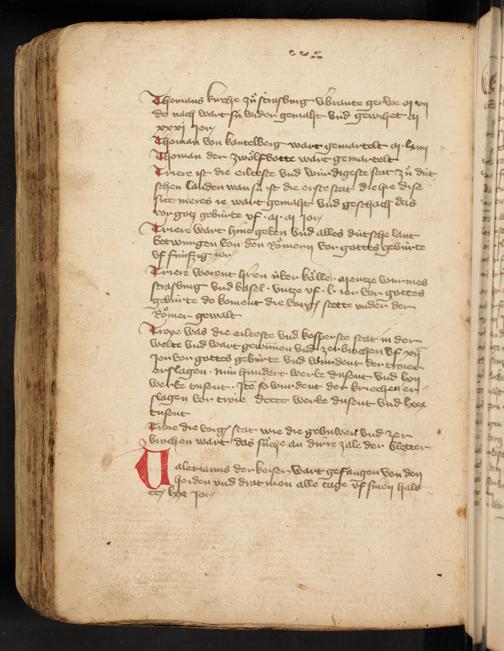 Thomans kirche zů strasburg verbrante
do nach wart sü wider gemaht und gewihet
xxxi jor
Thoman von kantelberg wart gemartelt
Thoman der zwölfbotte wart gemartelt
Triere ist die eilteste und würdigeste stat zů düt
schen landen wan sü ist die erste stat die disе
site meres ie wart gemaht und geschach das
vor gotz gebürte uf jor
Triere wart geben und alles dütsche lant
betwungen von den Römern vor gottes gebürte
uf fünfzig jor
Triere worent herren über kölle mentze wurmes
strasburg und basel untze uf l jor vor gottes
gebürte do koment die stette under der
Römer gewalt
Troye was die eilteste und kosperste stat in der
welte und wart gewunnen und zerbrochen uf
jor vor gottes gebürte und wurdent der troier
erslagen hundert werbe tusent und
werbe tusent so wurdent der kriechen er
slagen vor troie werbe tusent und lxxx
tusent
Troie die stat wie die gebuwen und zer
brochen wart das sůche an dirre zale der bletter
Valerianus der keiser wart gefangen von den
heiden und trat men alle tage uf sinen hals
cc lxx jor